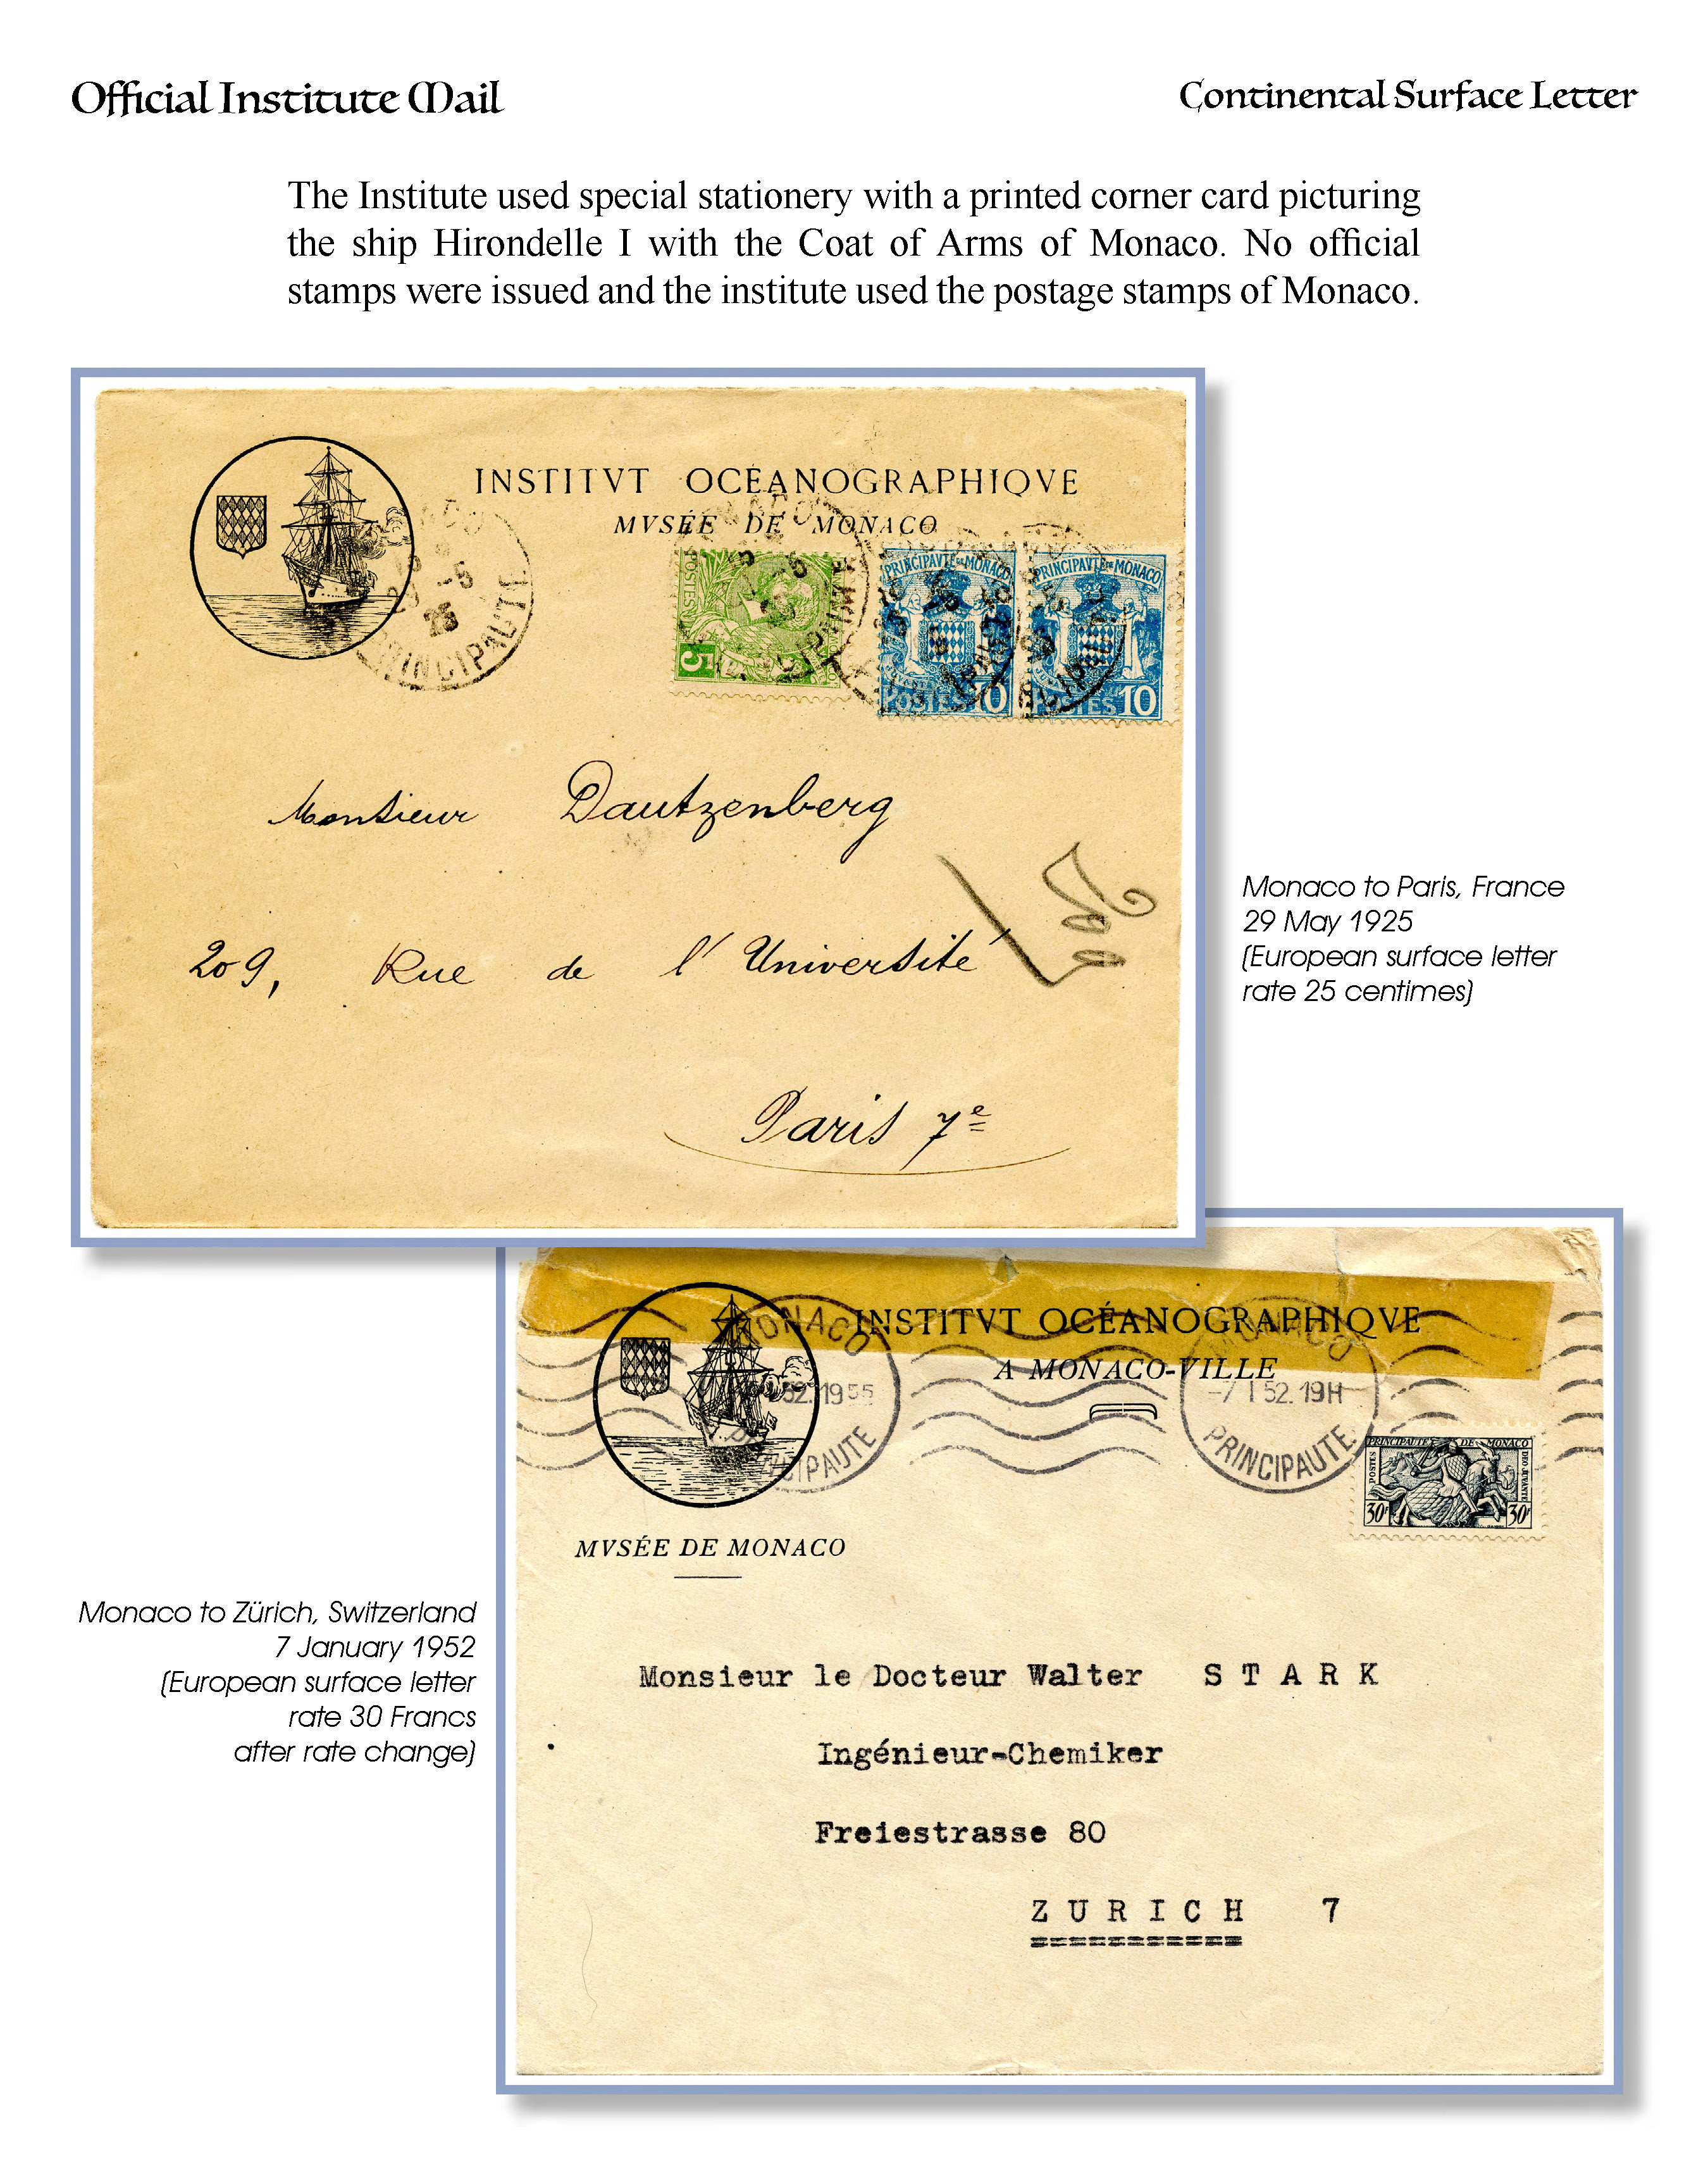 Official Institute Mail
Continental Surface Letter
The Institute used special stationery with a printed corner card picturing
the ship Hirondelle I with the Coat of Arms of Monaco. No official
stamps were issued and the institute used the postage stamps of Monaco.
INSTITVT OCÉANOGRAPHIQVE
MVSÉE DE MONACO
PRINCIPAUTE
5
PRINCIPAVTÉ DE MONACO
POSTES 10
PRINCIPAVTÉ DE MONACO
POSTES 10
Monsieur Dautzenberg
209, Rue de l'Université
Paris 7e
Monaco to Paris, France
29 May 1925
(European surface letter
rate 25 centimes)
INSTITVT OCÉANOGRAPHIQVE
A MONACO-VILLE
MONACO
PRINCIPAUTE
MONACO
-7 1 52. 19H
PRINCIPAUTE
PRINCIPAUTÉ DE MONACO
POSTES
DEO JUVANTE
30F 30F
MVSÉE DE MONACO
Monaco to Zürich, Switzerland
7 January 1952
(European surface letter
rate 30 Francs
after rate change)
Monsieur le Docteur Walter S T A R K
Ingénieur-Chemiker
Freiestrasse 80
Z U R I C H 7